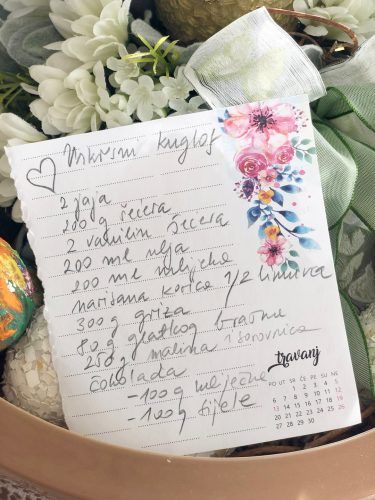 Uskrsni kuglof
2 jaja
200 g šećera
2 vanilin šećera
200 ml ulja
200 ml mlijeka
naribana korica 1/2 limuna
300 g griza
80 g glatkog brašna
250 g malina i borovnica
čokolada
- 100 g mliječne
- 100 g bijele
travanj
PO UT SR ČE PE SU NE
1 2 3 4 5
6 7 8 9 10 11 12
13 14 15 16 17 18 19
20 21 22 23 24 25 26
27 28 29 30